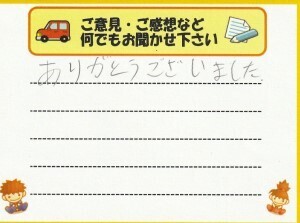 ご意見・ご感想など
何でもお聞かせ下さい
ありがとうございました。